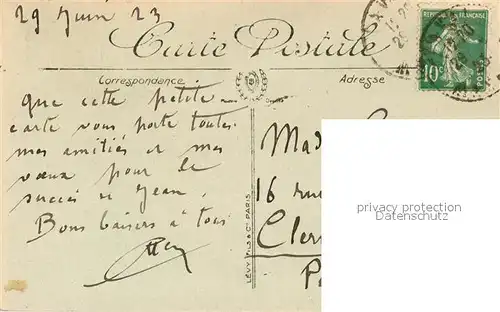 29 Juin 23
Carte Postale
Correspondance
Adresse
REPUBLIQUE FRANÇAISE
10c
POSTES
Que cette petite
carte vous porte toutes
mes amitiés et mes
vœux pour le
succès de Jean.
Bons baisers à tous
LÉVY FILS & Cie PARIS
Mad
16 rue
Cler
P
privacy protection
Datenschutz